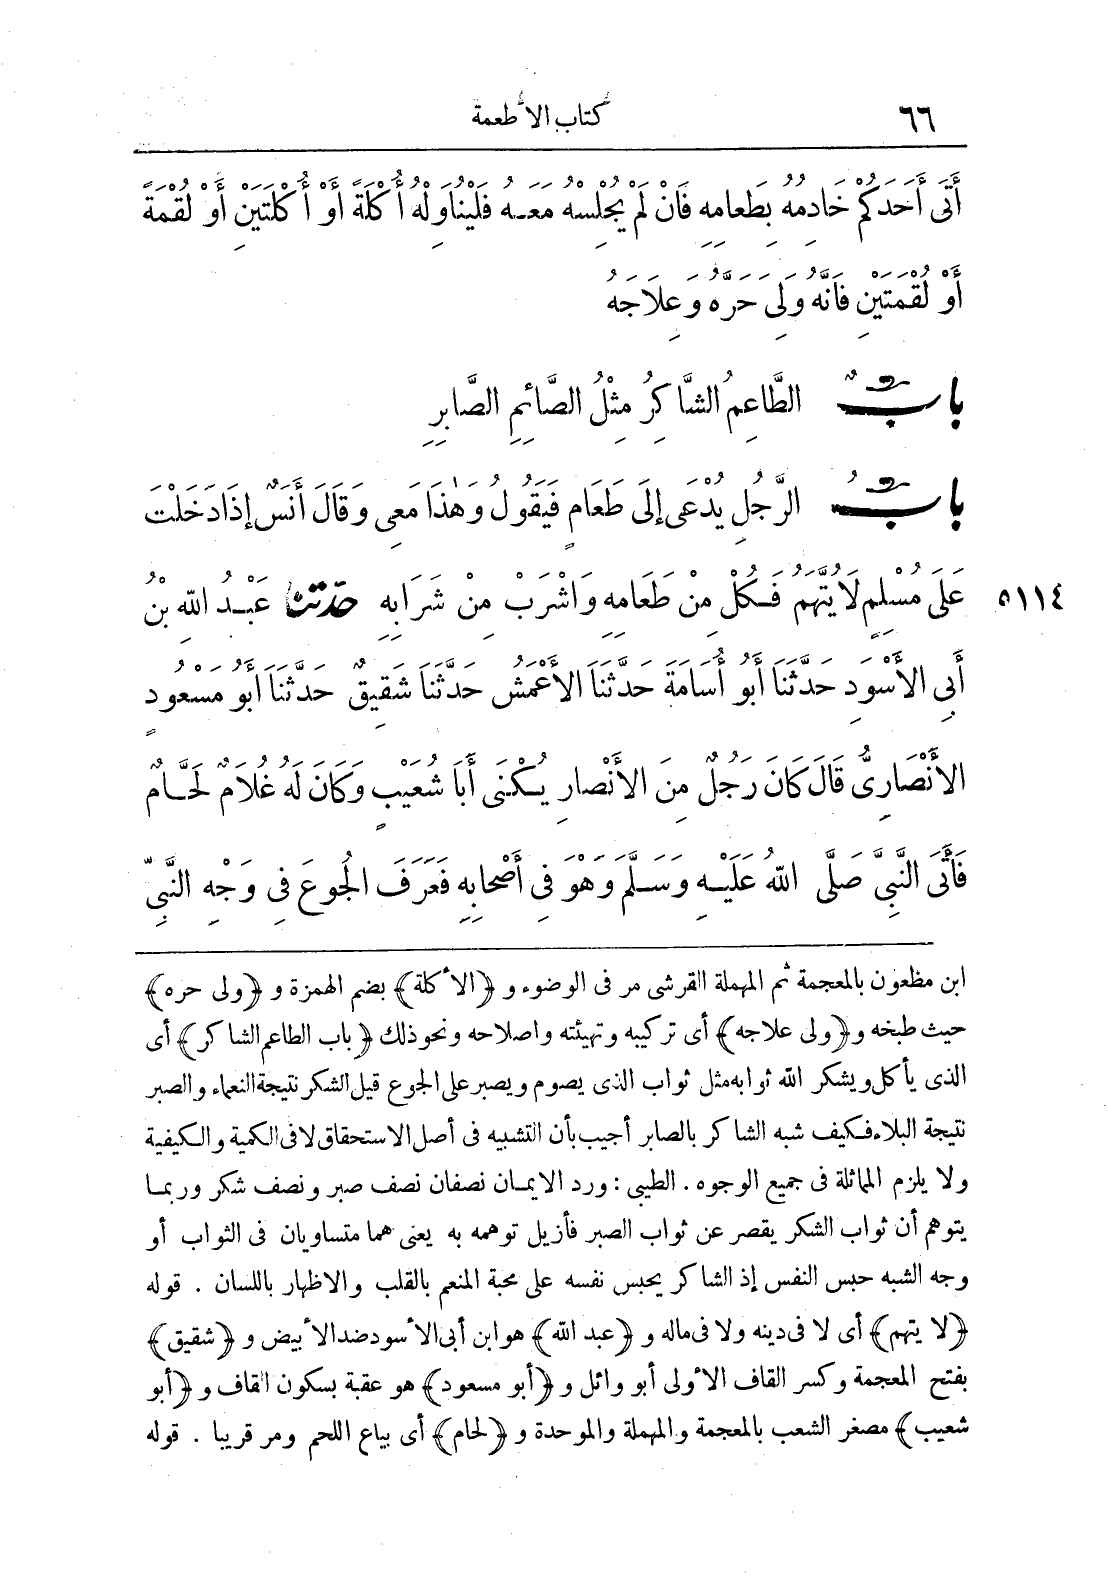 ٦٦ كتاب الأطعمة
أَتَى أَحَدَكُمْ خَادِمُهُ بِطَعَامِهِ فَانْ لَمْ يُجْلِسْهُ مَعَهُ فَلْيُنَاوِلْهُ أُكْلَةً أَوْ أُكْلَتَيْنِ أَوْ لُقْمَةً
أَوْ لُقْمَتَيْنِ فَانَّهُ وَلِىَ حَرَّهُ وَعِلَاجَهُ
بابٌ الطَّاعِمُ الشَّاكِرُ مِثْلُ الصَّائِمِ الصَّابِرِ
بابُ الرَّجُلِ يُدْعَى إِلَى طَعَامٍ فَيَقُولُ وَهٰذَا مَعِى وَقَالَ أَنَسٌ إِذَا دَخَلْتَ
عَلَى مُسْلِمٍ لَا يُتَّهَمُ فَكُلْ مِنْ طَعَامِهِ وَاشْرَبْ مِنْ شَرَابِهِ حدثنا عَبْدُ اللهِ بْنُ ٥١١٤
أَبِى الأَسْوَدِ حَدَّثَنَا أَبُو أُسَامَةَ حَدَّثَنَا الأَعْمَشُ حَدَّثَنَا شَقِيقٌ حَدَّثَنَا أَبُو مَسْعُودٍ
الأَنْصَارِىُّ قَالَ كَانَ رَجُلٌ مِنَ الأَنْصَارِ يُكْنَى أَبَا شُعَيْبٍ وَكَانَ لَهُ غُلَامٌ لَحَّامٌ
فَأَتَى النَّبِىَّ صَلَّى اللهُ عَلَيْهِ وَسَلَّمَ وَهْوَ فِى أَصْحَابِهِ فَعَرَفَ الْجُوعَ فِى وَجْهِ النَّبِىِّ
ابن مظعون بالمعجمة ثم المهملة القرشى مر فى الوضوء و ﴿الأكلة﴾ بضم الهمزة و ﴿ولى حره﴾
حيث طبخه و ﴿ولى علاجه﴾ أى تركيبه وتهيئته واصلاحه ونحو ذلك ﴿باب الطاعم الشاكر﴾ أى
الذى يأكل ويشكر الله ثوابه مثل ثواب الذى يصوم ويصبر على الجوع قيل الشكر نتيجة النعماء والصبر
نتيجة البلاء فكيف شبه الشاكر بالصابر أجيب بأن التشبيه فى أصل الاستحقاق لا فى الكمية والكيفية
ولا يلزم المماثلة فى جميع الوجوه . الطيبى : ورد الايمان نصفان نصف صبر ونصف شكر وربما
يتوهم أن ثواب الشكر يقصر عن ثواب الصبر فأزيل توهمه به يعنى هما متساويان فى الثواب أو
وجه الشبه حبس النفس إذ الشاكر يحبس نفسه على محبة المنعم بالقلب والاظهار باللسان . قوله
﴿لا يتهم﴾ أى لا فى دينه ولا فى ماله و ﴿عبد الله﴾ هو ابن أبى الأسود ضد الأبيض و ﴿شقيق﴾
بفتح المعجمة وكسر القاف الأولى أبو وائل و ﴿أبو مسعود﴾ هو عقبة بسكون القاف و ﴿أبو
شعيب﴾ مصغر الشعب بالمعجمة والمهملة والموحدة و ﴿لحام﴾ أى بياع اللحم ومر قريبا . قوله